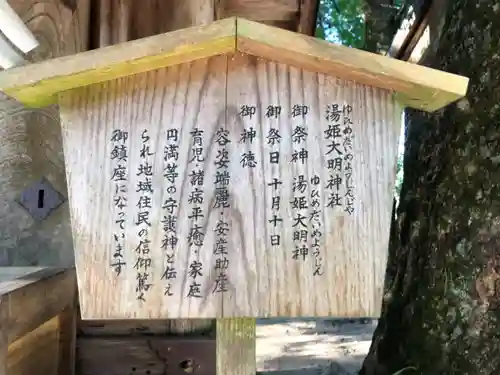 ゆひめだいめょうじんじゃ
湯姫大明神社
ゆひめだいめようじん
御祭神 湯姫大明神
御祭日 十月十日
御神徳
容姿端麗・安産助産
育児・諸病平癒・家庭
円満等の守護神と伝え
られ地域住民の信仰篤く
御鎮座になっています